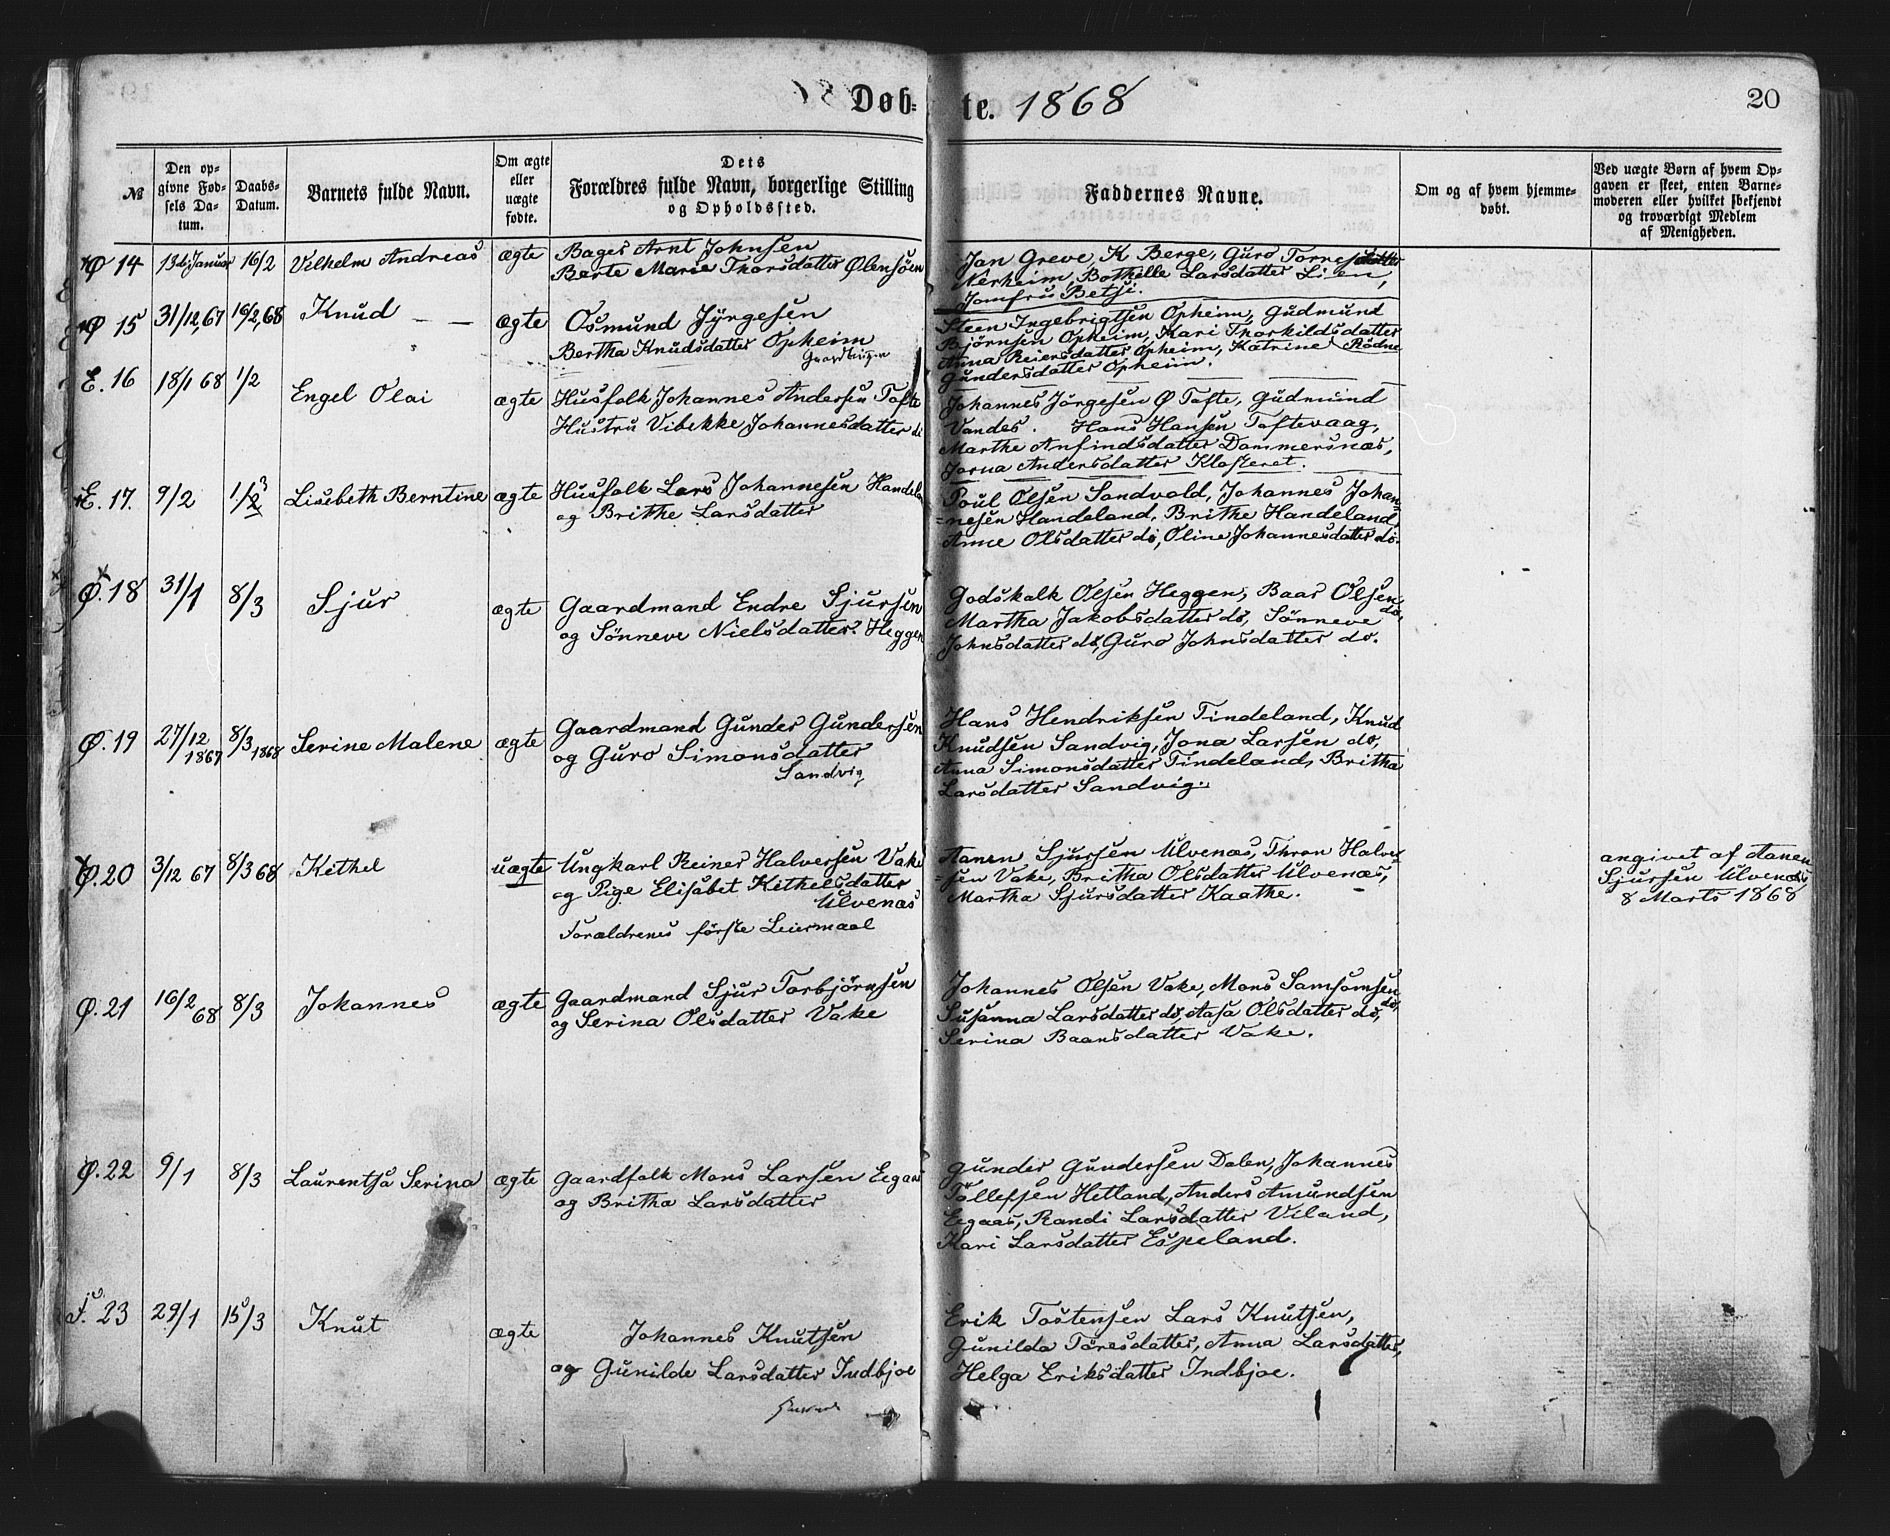 Døb-te. 1868
20
№
Den op-
givne Fød-
sels Da-
tum.
Daabs-
Datum.
Barnets fulde Navn.
Om ægte
eller
uægte
fødte.
Dets
Forældres fulde Navn, borgerlige Stilling
og Opholdssted.
Faddernes Navne.
Om og af hvem hjemme-
døbt.
Ved uægte Børn af hvem Op-
gaven er skeet, enten Barne-
moderen eller hvilket bekjendt
og troværdigt Medlem
af Menigheden.
Ø 14 13de Januar 16/2 Vilhelm Andreas ægte
Bager Arnt Johnsen
Berte Marie Thorsdatter Ølensjøen
Jan Greve, K Berge, Guro Torresdatter
Nerheim, Bothelle Larsdatter Lien,
Jomfru Betsi.
Ø 15 31/12,67 16/2,68 Knud ægte
Osmund Jyrgesen
Bertha Knudsdatter Opheim
Steen Ingebrigtsen Opheim, Gudmund
Bjørnsen Opheim, Kari Thorkildsdatter
Anna Reiersdatter Opheim, Katrine Rødne
Gundersdatter Opheim.
E. 16 18/1 68 1/2 Engel Olai ægte
Husfolk Johannes Andersen Tofte
Hustru Vibekke Johannesdatter
Johannes Jørgesen Ø Tofte, Gudmund
Vandes. Hans Hansen Toftevaag,
Marthe Anfindsdatter Dommersnæs,
Andersdatter Klosteret.
E. 17. 9/2 1/3 Lisebeth Berntine ægte
Husfolk Lars Johannesen Handeland
og Brithe Larsdatter
Poul Olsen Sandvold, Johannes Johan-
=nesen Handeland, Brithe Handeland,
Anne Olsdatter do, Oline Johannesdatter do.
Ø. 18 31/1 8/3 Sjur ægte
Gaardmand Endre Sjursen
og Sønneve Nielsdatter. Heggen
Godskalk Olsen Heggen, Baar Olsen
do,
Martha Jakobsdatter do, Sønneve
Johnsdatter do, Guro Johnsdatter do.
Ø. 19 27/12 1867 8/3 1868 Serine Malene ægte
Gaardmand Gunder Gundersen
og Guro Simonsdatter
Sandvig
Hans Hendriksen Tindeland, Knud
Knudsen Sandvig, Jona Larsen do,
Anna Simonsdatter Tindeland, Britha
Larsdatter Sandvig.
Ø. 20 3/12 67 8/3 68 Kithel uægte
Ungkarl Reiner Halversen Vake
og Pige Elisabet Kithelsdatter
Ulvenæs
Forældrenes første Leiermaal
Aanen Sjursen Ulvenæs, Thron Halver-
=sen Vake, Britha Olsdatter Ulvenæs,
Martha Sjursdatter Kaathe.
angivet af Aanen
Sjursen Ulvenæs
8 Marts 1868
Ø. 21 16/2 68 8/3 Johannes ægte
Gaardmand Sjur Torbjørnsen
og Serina Olsdatter Vake
Johannes Olsen Vake, Mons Samsomsen
do,
Susanna Larsdatter do, Aasa Olsdatter do,
Serina Baarsdatter Vake.
Ø. 22 9/1 8/3 Laurentsa Serina ægte
Gaardfolk Mons Larsen Eegaas
og Britha Larsdatter
Gunder Gundersen Dalen, Johannes
Tollefsen Hetland, Anders Amundsen
Eegaas, Randi Larsdatter Viland,
Kari Larsdatter Espeland.
23 29/1 15/3 Knut ægte
Johannes Knutsen
og Gunilde Larsdatter Indbjoe
Erik Tostensen Lars Knutsen,
Gunilda Toresdatter, Anna Larsdatter,
Helga Eriksdatter Indbjoe.